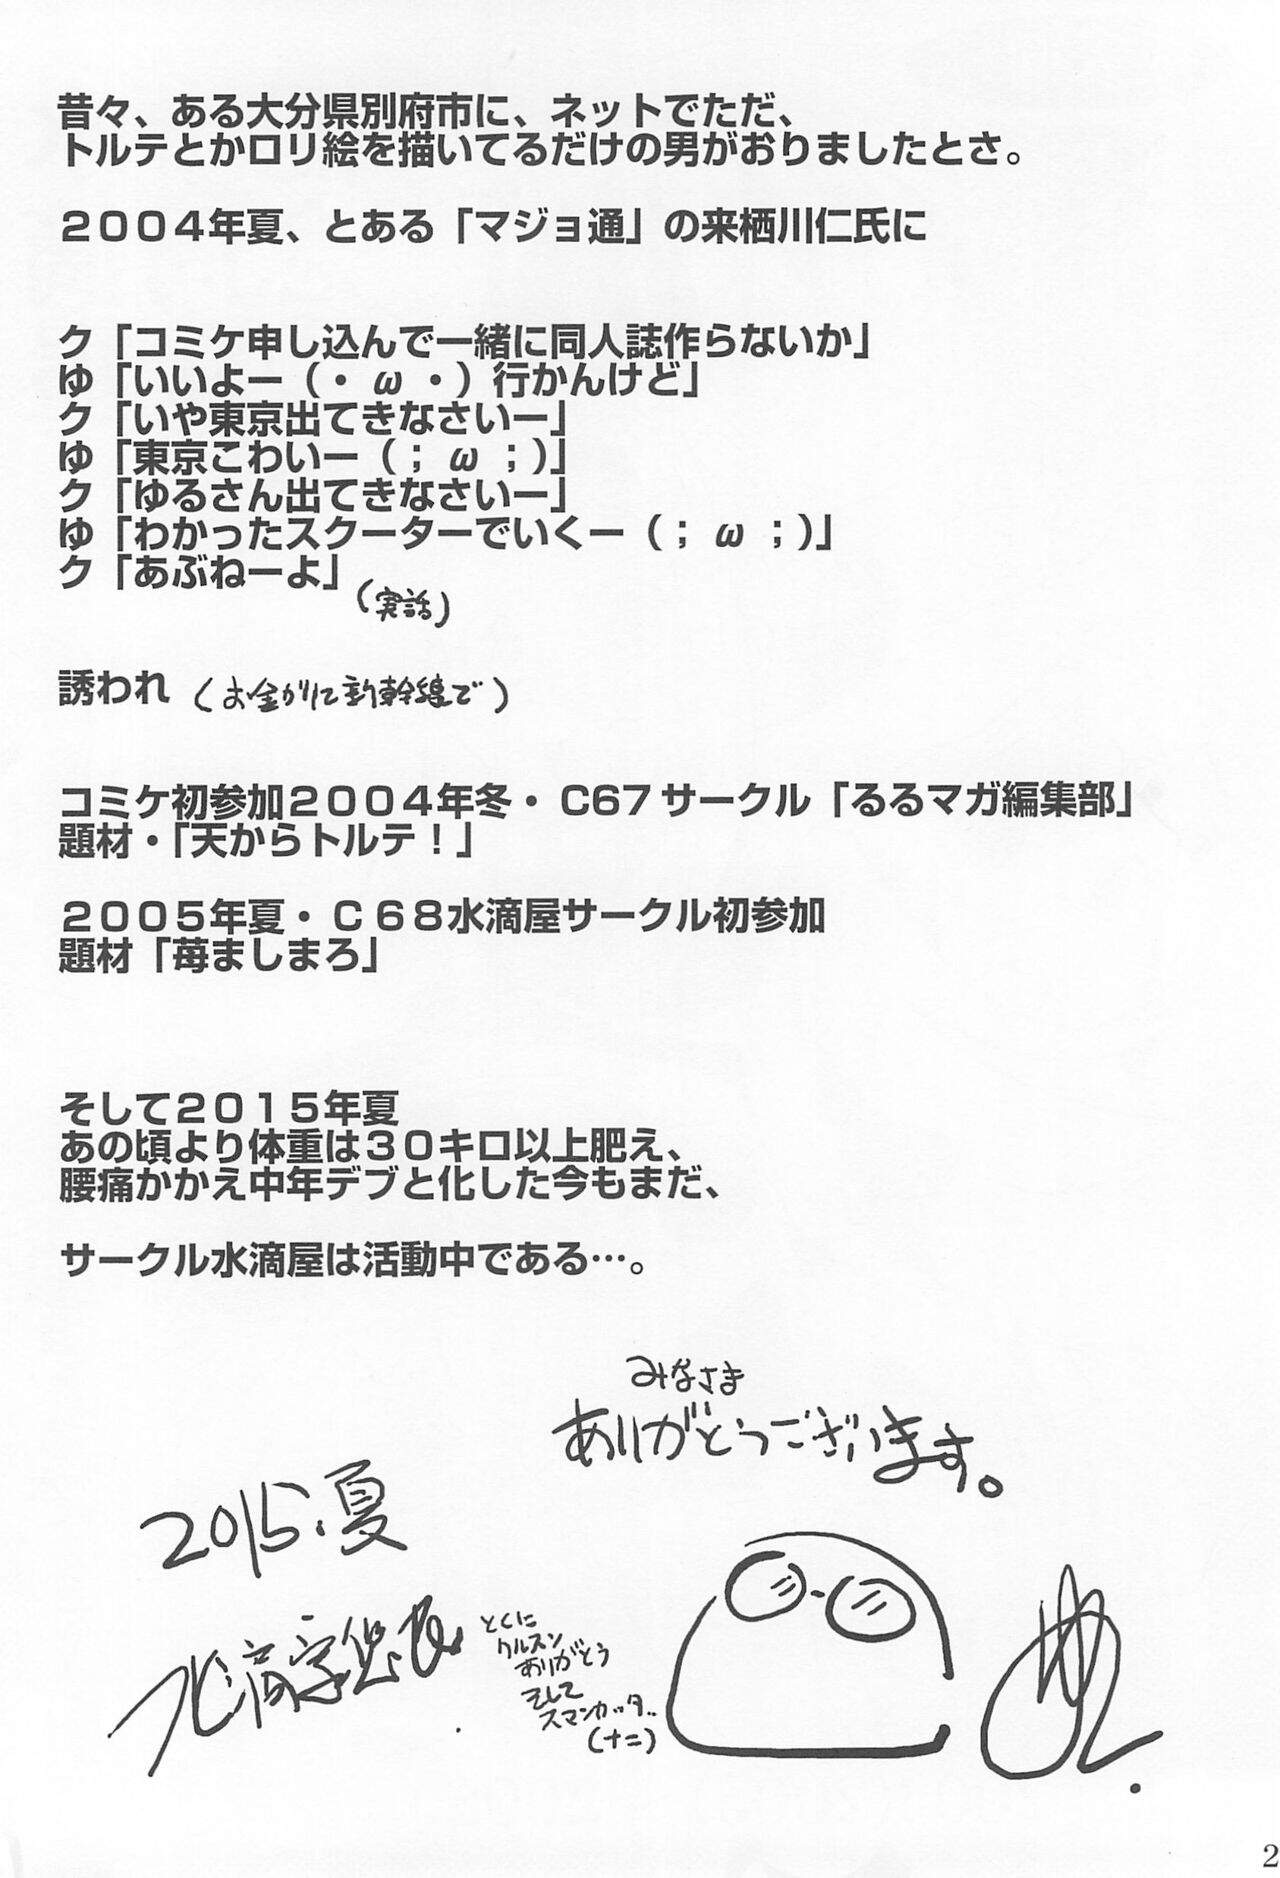 昔々、ある大分県別府市に、ネットでただ、
トルテとかロリ絵を描いてるだけの男がおりましたとさ。
２００４年夏、とある「マジョ通」の来栖川仁氏に
ク「コミケ申し込んで一緒に同人誌作らないか」
ゆ「いいよー（・ω・）行かんけど」
ク「いや東京出てきなさいー」
ゆ「東京こわいー（；ω；）」
ク「ゆるさん出てきなさいー」
ゆ「わかったスクーターでいくー（；ω；）」
ク「あぶねーよ」
（実話）
誘われ（お金かりに新幹線で）
コミケ初参加２００４年冬・Ｃ67サークル「るるマガ編集部」
題材・「天からトルテ！」
２００５年夏・Ｃ６８水滴屋サークル初参加
題材「苺ましまろ」
そして２０１５年夏
あの頃より体重は３０キロ以上肥え、
腰痛かかえ中年デブと化した今もまだ、
サークル水滴屋は活動中である…。
みなさま
ありがとうございます。
2015.夏
とくに
クルスン
ありがとう
そして
スマンカッタ..
2